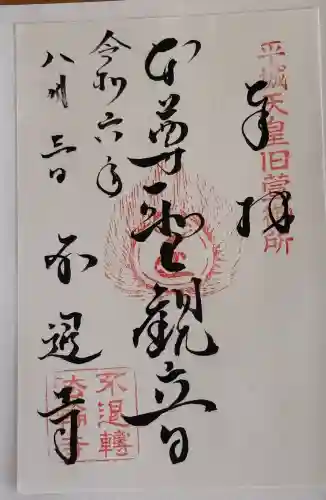 奉拝
平城天皇旧萱御所
本尊聖観音
令和六年
八月三日
不退寺
不退轉
法輪寺